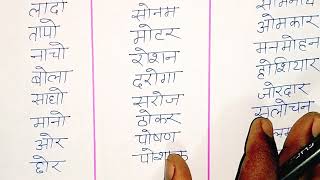 लादो
तापो
नाचो
बोला
साधो
मानो
ओर
छोर
सोनम
मोटर
रोशन
दरोगा
सरोज
ठोकर
पोषण
पोशाक
सोमनाथ
ओमकार
मनमोहन
होशियार
जोरदार
सलोचन